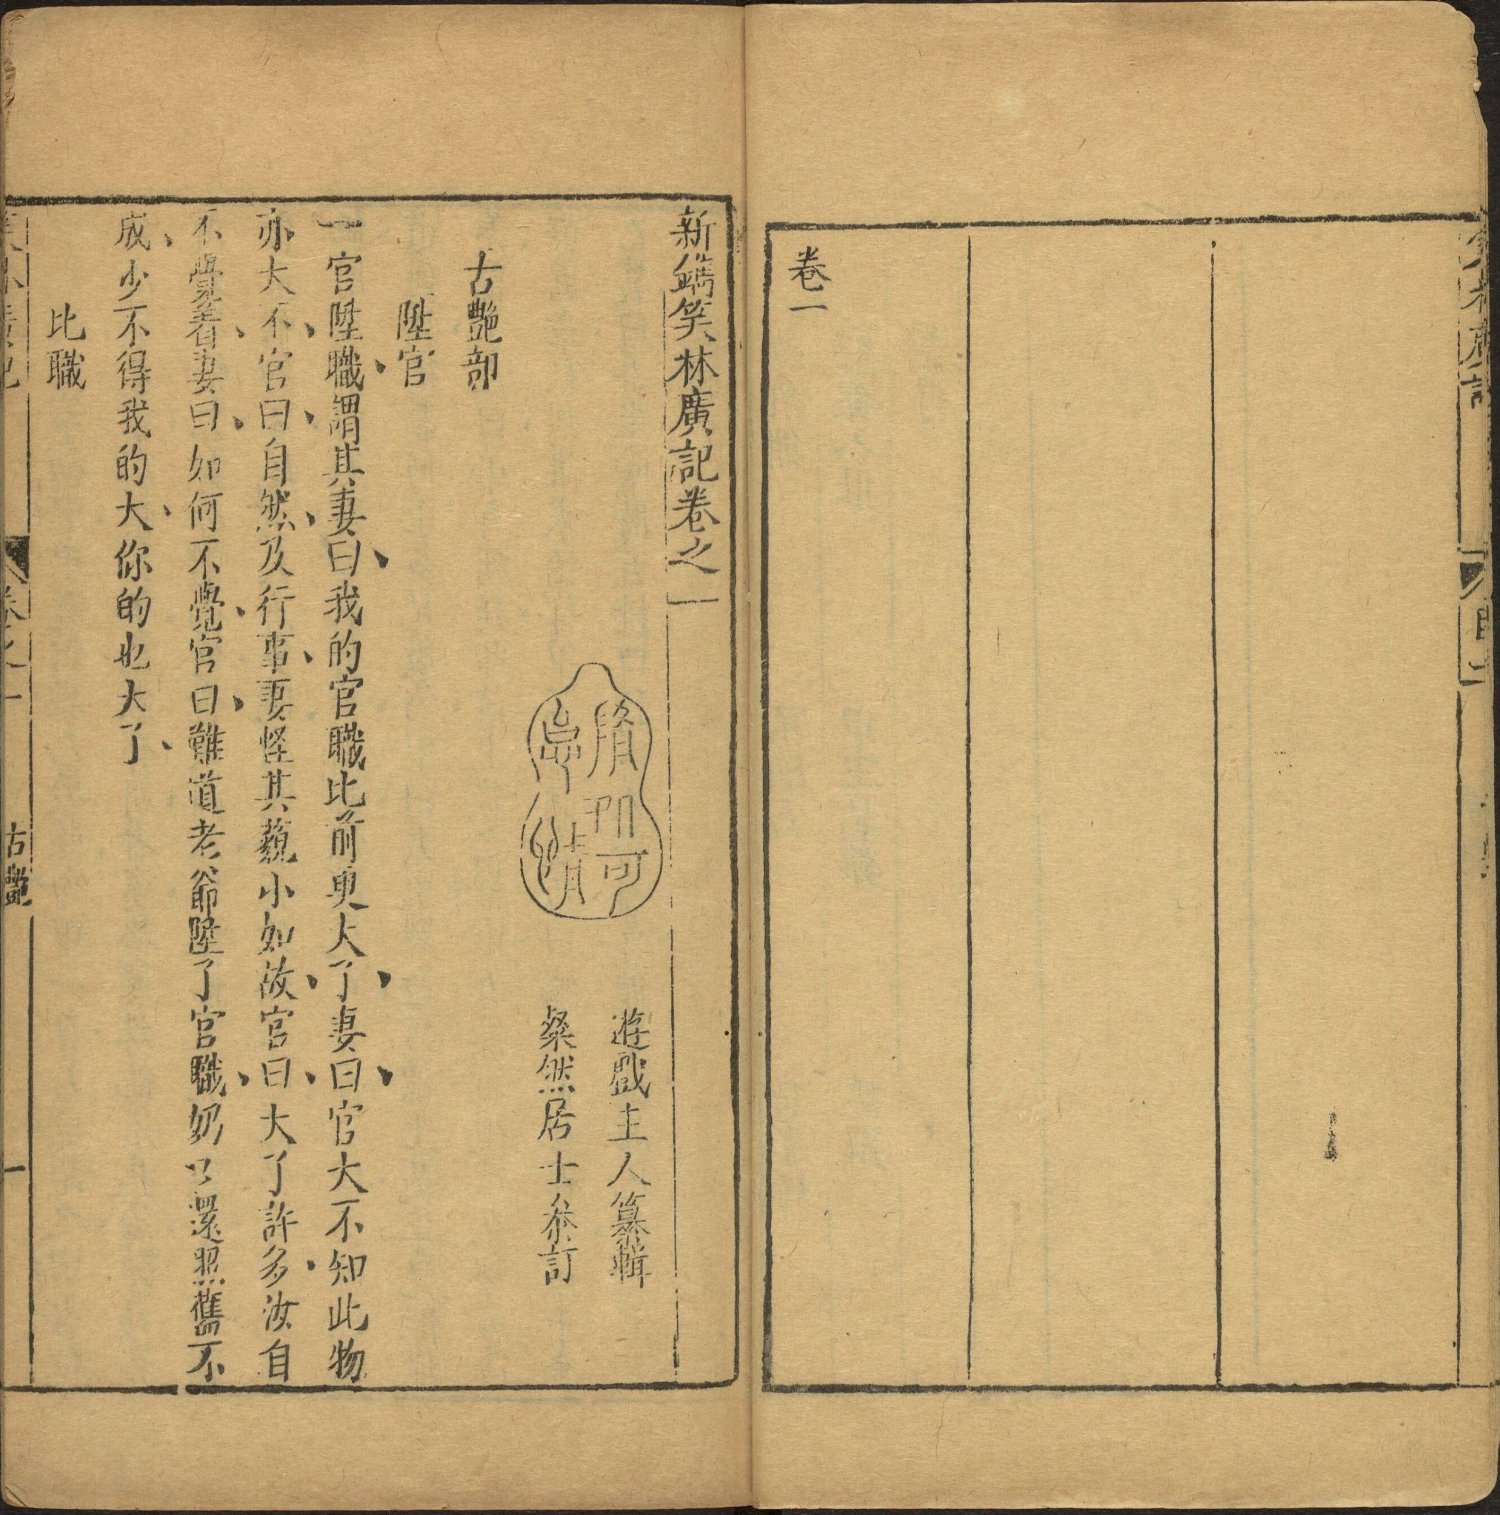 卷一
新鐫笑林廣記卷之一
遊戲主人纂輯
粲然居士叅訂
古艷部
陞官
一官陞職、謂其妻曰、我的官職比前更大了、妻曰、官大不知此物
亦大不、官曰、自然、及行事、妻怪其藐小如故、官曰、大了許多、汝自
不覺着、妻曰、如何不覺、官曰、難道老爺陞了官職、奶々還照舊不
成、少不得我的大、你的也大了、
比職
卷之一
古艷
一